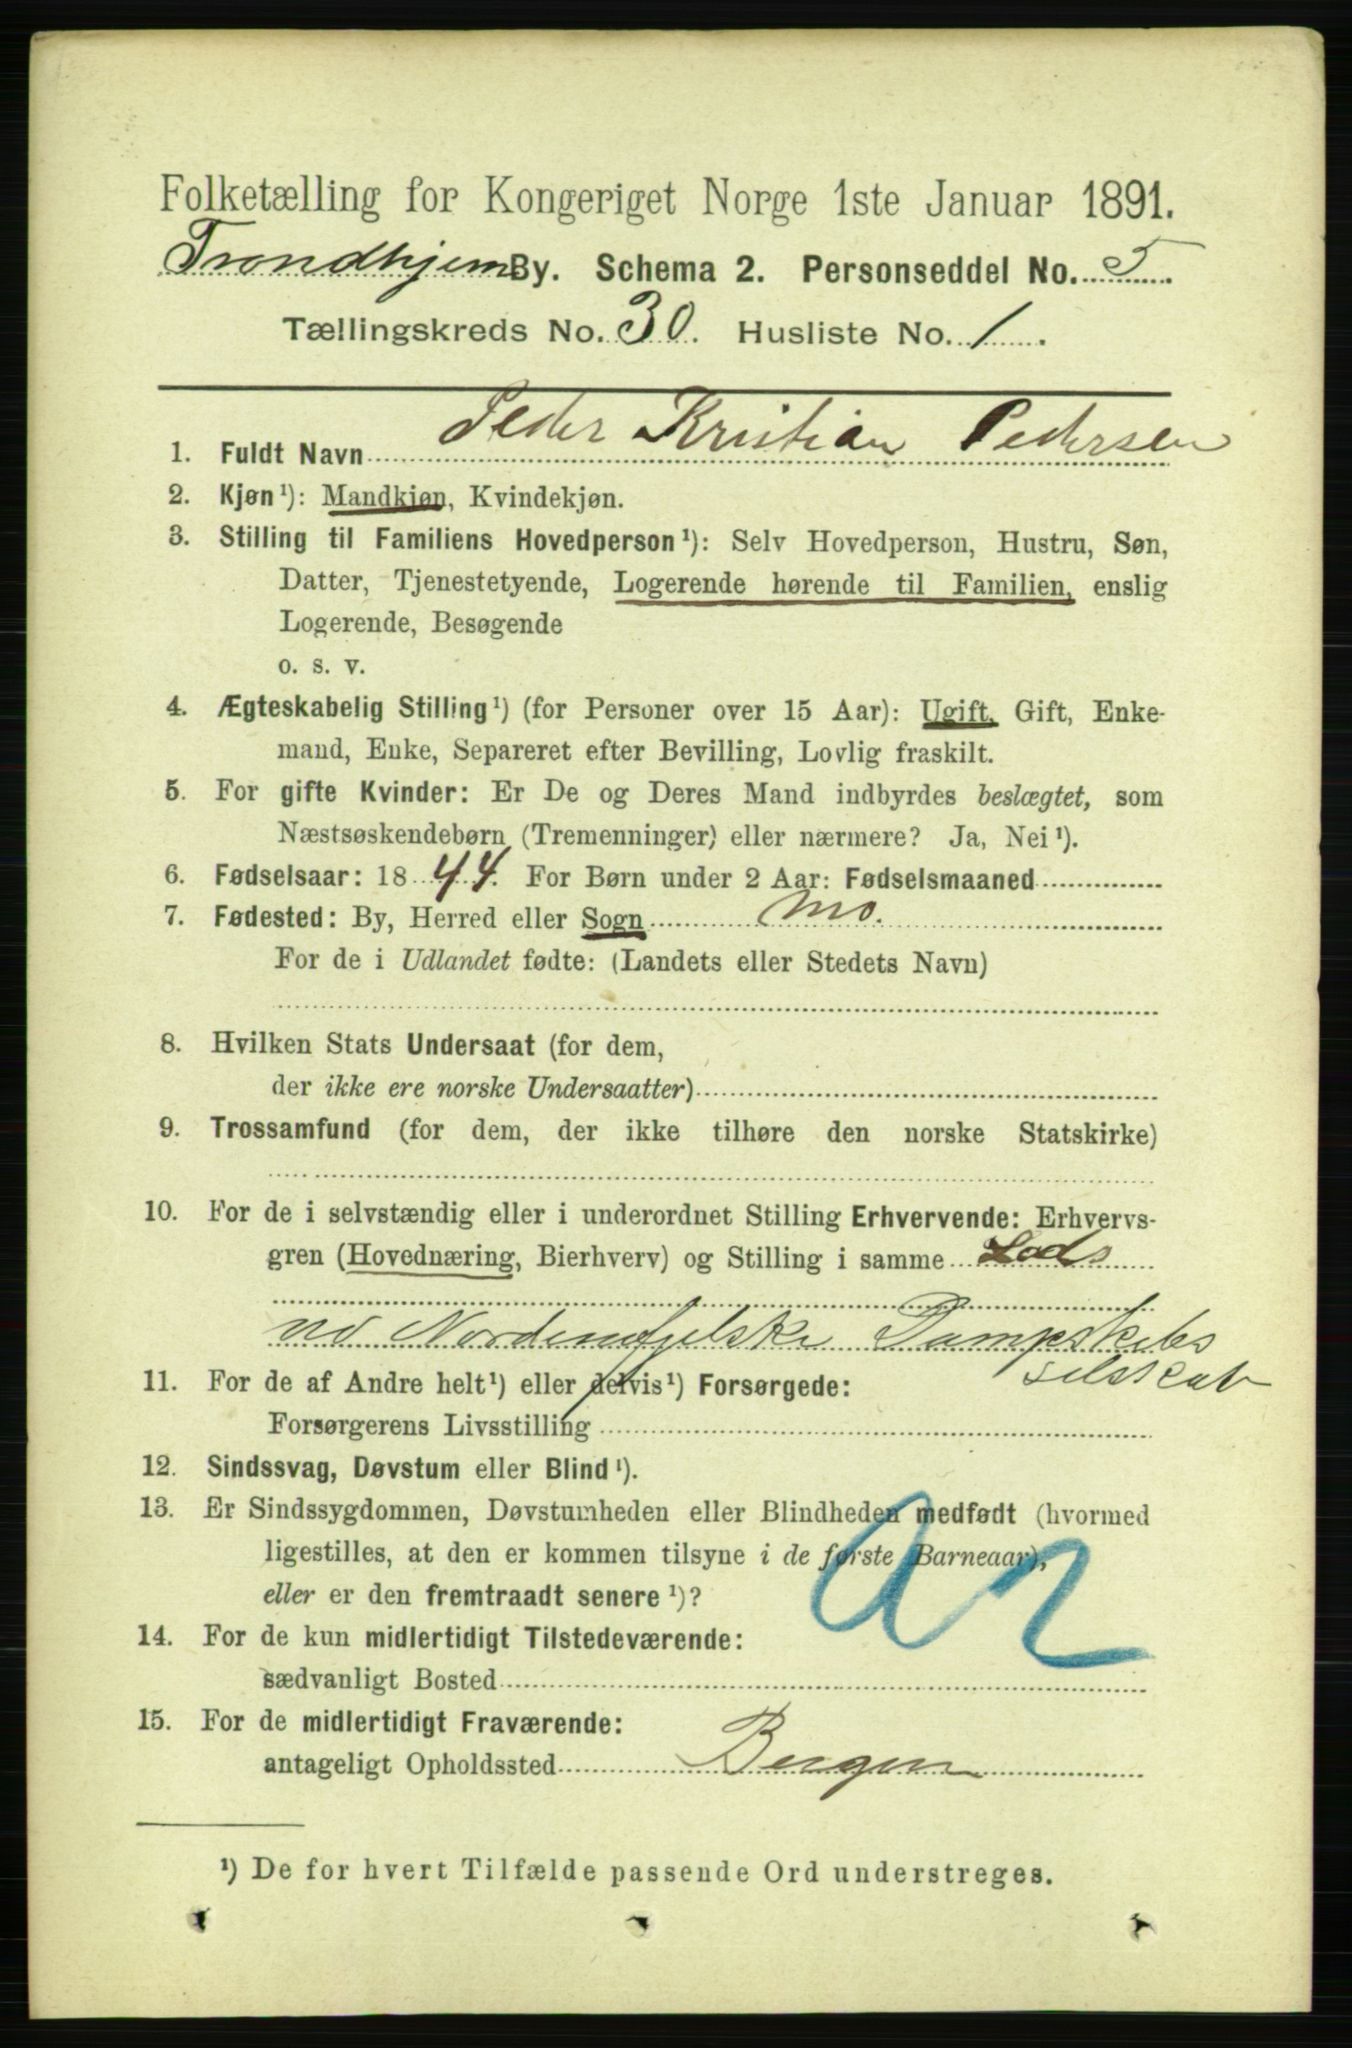 Folketælling for Kongeriget Norge 1ste Januar 1891.
Trondhjem By. Schema 2. Personseddel No. 5.
Tællingskreds No. 30. Husliste No. 1.
1. Fuldt Navn Peder Kristian Pedersen
2. Kjøn¹): Mandkjøn, Kvindekjøn.
3. Stilling til Familiens Hovedperson¹): Selv Hovedperson, Hustru, Søn,
Datter, Tjenestetyende, Logerende hørende til Familien, enslig
Logerende, Besøgende
o. s. v.
4. Ægteskabelig Stilling¹) (for Personer over 15 Aar): Ugift, Gift, Enke-
mand, Enke, Separeret efter Bevilling, Lovlig fraskilt.
5. For gifte Kvinder: Er De og Deres Mand indbyrdes beslægtet, som
Næstsøskendebørn (Tremenninger) eller nærmere? Ja, Nei¹).
6. Fødselsaar: 1844. For Børn under 2 Aar: Fødselsmaaned
7. Fødested: By, Herred eller Sogn Mo.
For de i Udlandet fødte: (Landets eller Stedets Navn)
8. Hvilken Stats Undersaat (for dem,
der ikke ere norske Undersaatter)
9. Trossamfund (for dem, der ikke tilhøre den norske Statskirke)
10. For de i selvstændig eller i underordnet Stilling Erhvervende: Erhvervs-
gren (Hovednæring, Bierhverv) og Stilling i samme Lods
ved Nordenfjelske Dampskibs
selskab
11. For de af Andre helt¹) eller delvis¹) Forsørgede:
Forsørgerens Livsstilling
12. Sindssvag, Døvstum eller Blind¹).
13. Er Sindssygdommen, Døvstumheden eller Blindheden medfødt (hvormed
ligestilles, at den er kommen tilsyne i de første Barneaar),
eller er den fremtraadt senere¹)?
14. For de kun midlertidigt Tilstedeværende:
sædvanligt Bosted
15. For de midlertidigt Fraværende:
antageligt Opholdssted Bergen
¹) De for hvert Tilfælde passende Ord understreges.